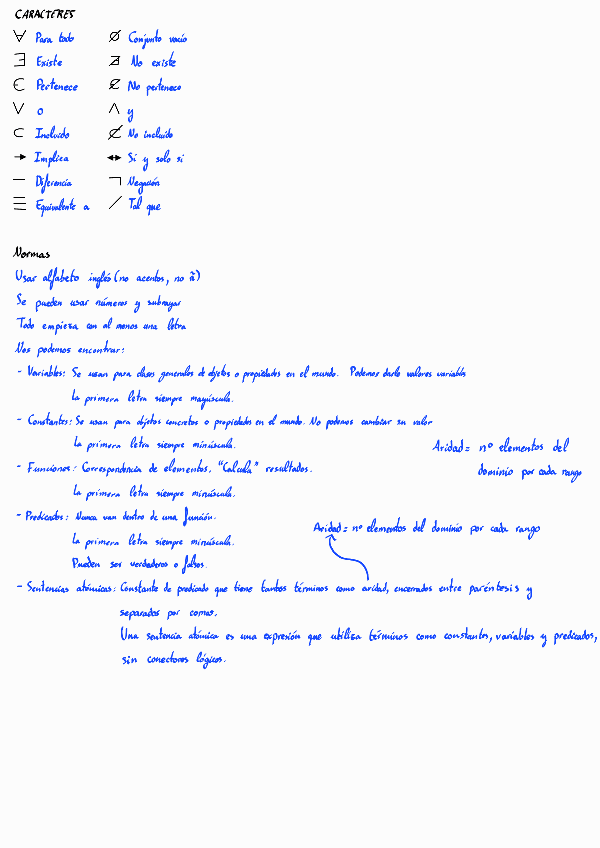 CARACTERES
∀ Para todo ∅ Conjunto vacío
∃ Existe ∄ No existe
∈ Pertenece ∉ No pertenece
∨ o ∧ y
⊂ Incluido ⊄ No incluido
→ Implica ↔ Si y solo si
— Diferencia ¬ Negación
≡ Equivalente a / Tal que
Normas
Usar alfabeto inglés (no acentos, no ñ)
Se pueden usar números y subrayar
Todo empieza con al menos una letra
Nos podemos encontrar:
- Variables: Se usan para clases generales de objetos o propiedades en el mundo. Podemos darle valores variables
La primera letra siempre mayúscula.
- Constantes: Se usan para objetos concretos o propiedades en el mundo. No podemos cambiar su valor
La primera letra siempre minúscula.
Aridad = nº elementos del
dominio por cada rango
- Funciones: Correspondencia de elementos. "Calcula" resultados.
La primera letra siempre minúscula.
- Predicados: Nunca van dentro de una función.
Aridad = nº elementos del dominio por cada rango
La primera letra siempre minúscula.
Pueden ser verdaderos o falsos.
- Sentencias atómicas: Constante de predicado que tiene tantos términos como aridad, encerrados entre paréntesis y
separados por comas.
Una sentencia atómica es una expresión que utiliza términos como constantes, variables y predicados,
sin conectores lógicos.